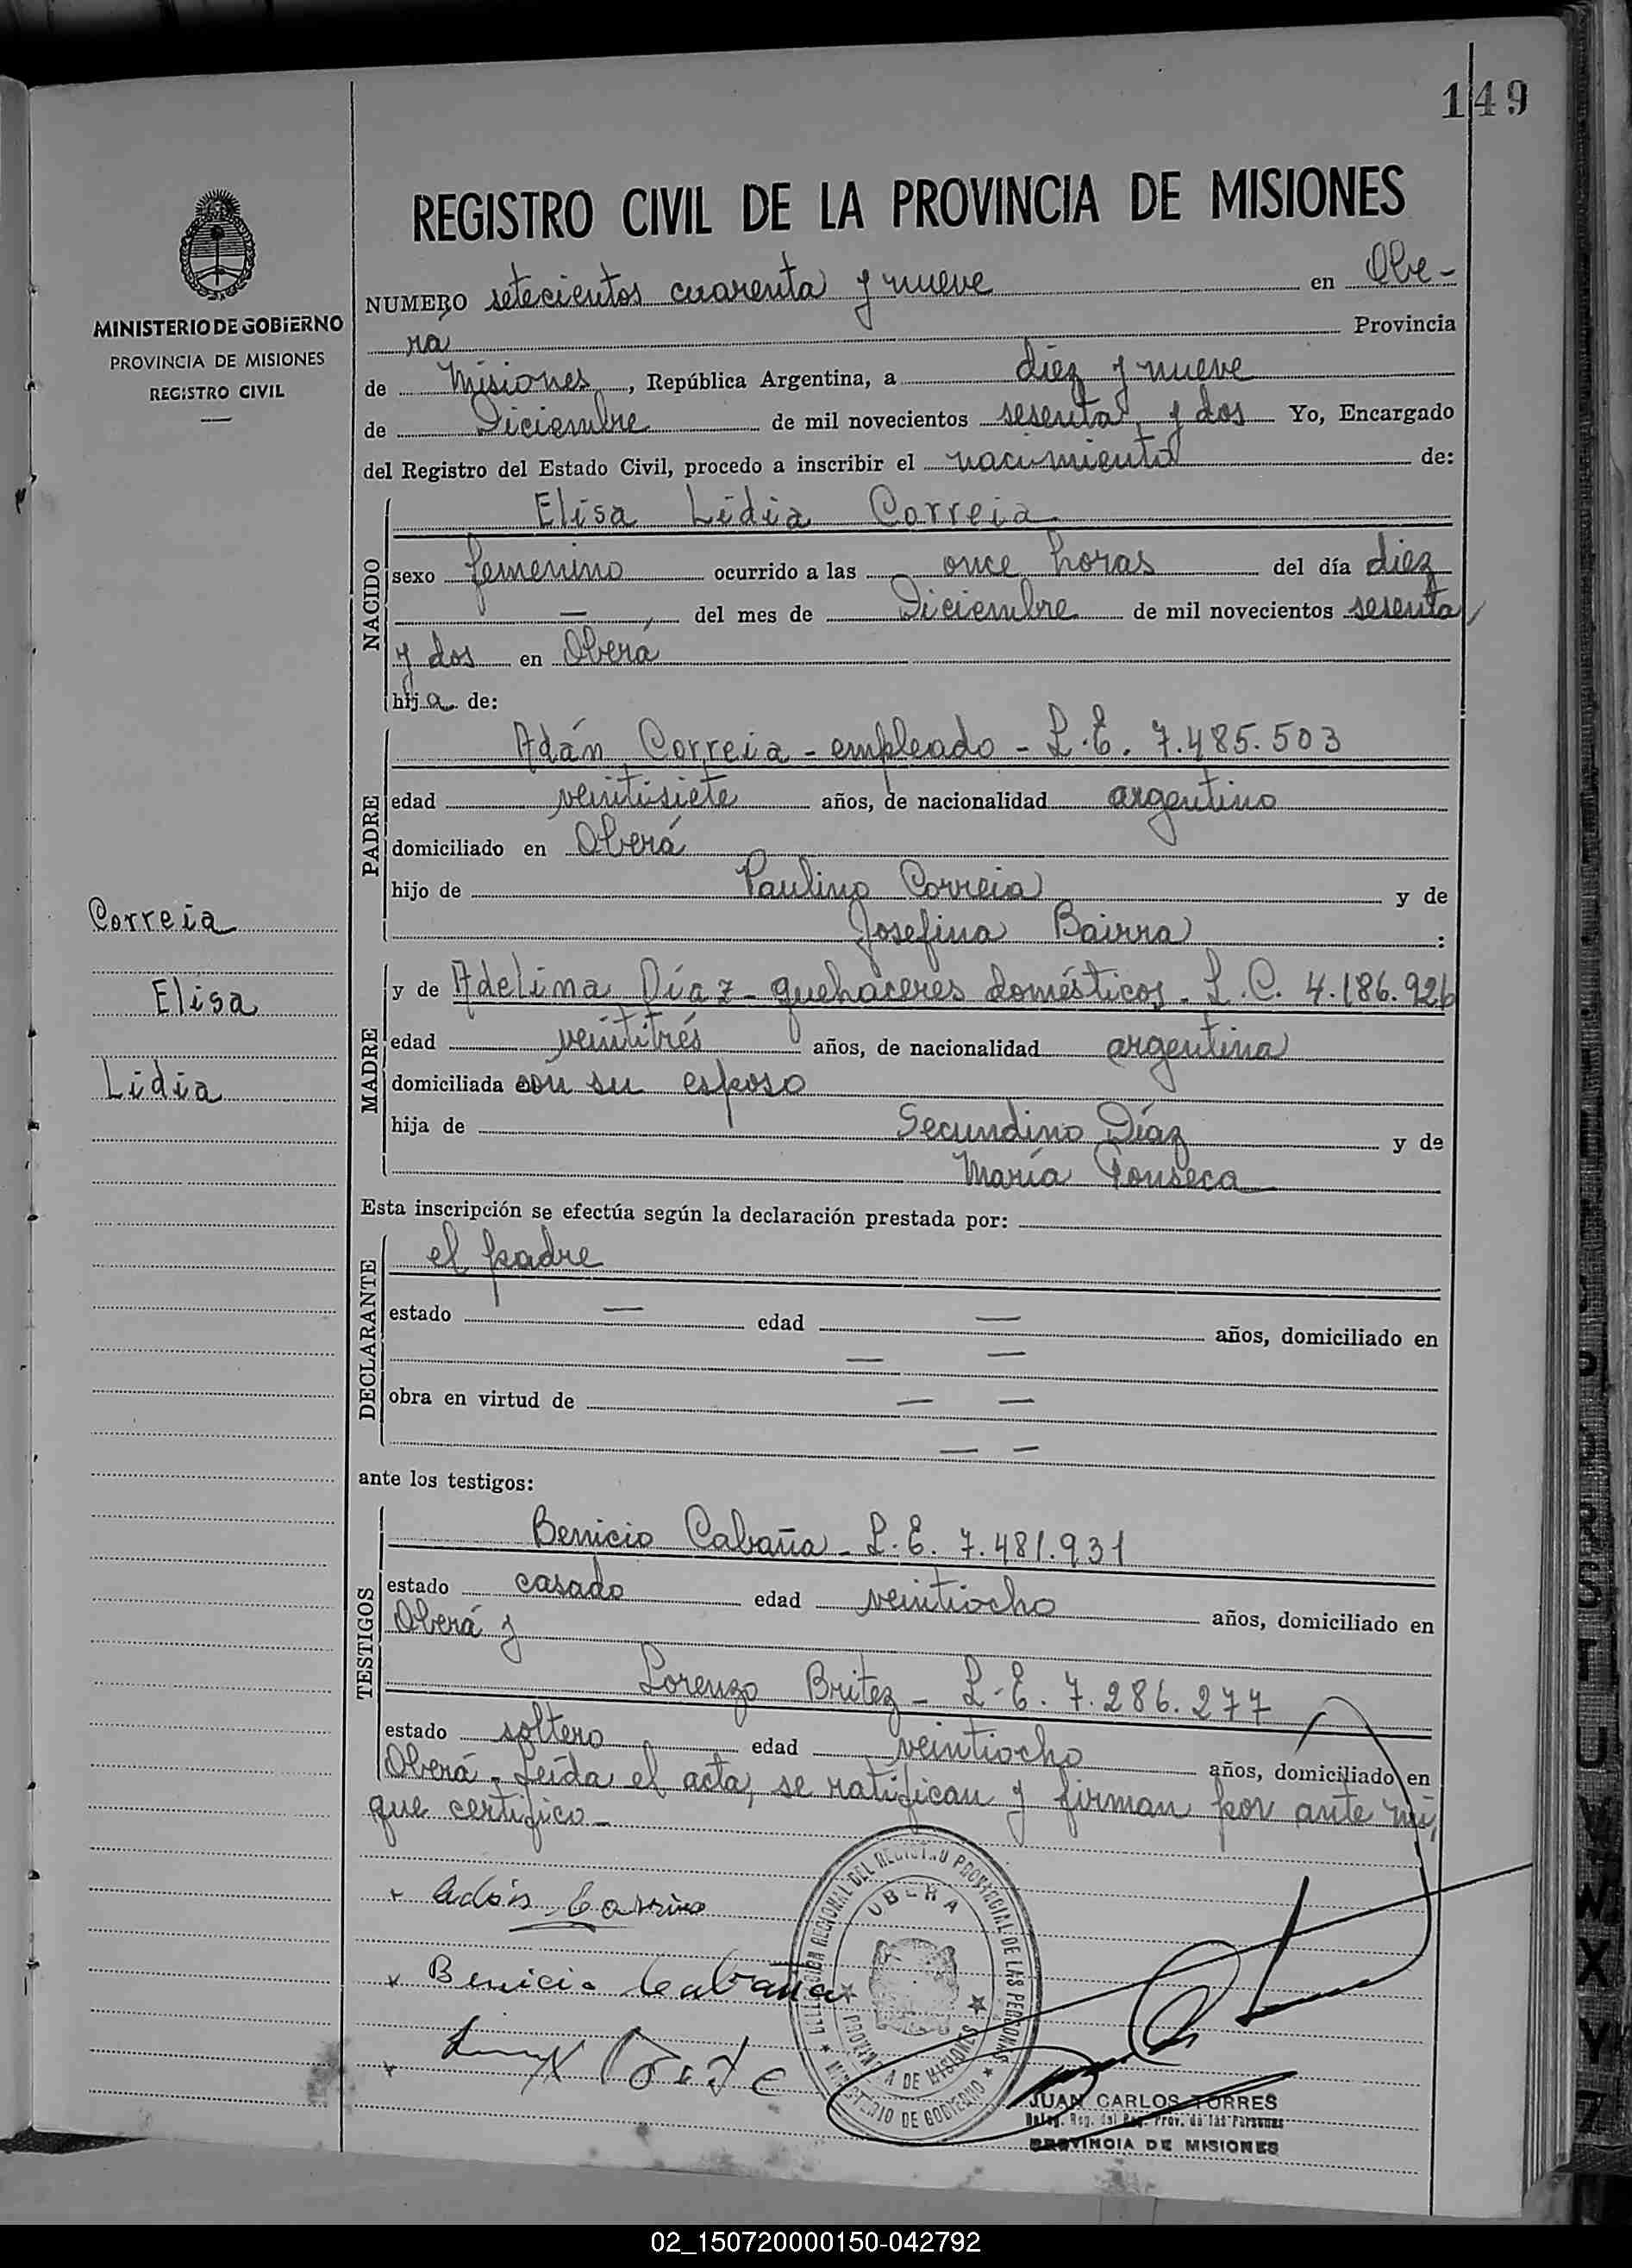 149
REGISTRO CIVIL DE LA PROVINCIA DE MISIONES
MINISTERIO DE GOBIERNO
PROVINCIA DE MISIONES
REGISTRO CIVIL
NUMERO setecientos cuarenta y nueve en Obe-
rá Provincia
de Misiones, República Argentina, a diez y nueve
de Diciembre de mil novecientos sesenta y dos Yo, Encargado
del Registro del Estado Civil, procedo a inscribir el nacimiento de:
NACIDO
Elisa Lidia Correia
sexo femenino ocurrido a las once horas del día diez
— del mes de Diciembre de mil novecientos sesenta
y dos en Oberá
hija de:
PADRE
Adán Correia - empleado - L.E. 7.485.503
edad veintisiete años, de nacionalidad argentino
domiciliado en Oberá
hijo de Paulino Correia y de
Josefina Bairra :
Correia
Elisa
Lidia
MADRE
y de Adelina Díaz - quehaceres domésticos - L.C. 4.186.926
edad veintitrés años, de nacionalidad argentina
domiciliada con su esposo
hija de Secundino Díaz y de
María Fonseca
Esta inscripción se efectúa según la declaración prestada por:
DECLARANTE
el padre
estado — edad — años, domiciliado en
— —
obra en virtud de — —
— —
ante los testigos:
TESTIGOS
Benicio Cabaña - L.E. 7.481.931
estado casado edad veintiocho años, domiciliado en
Oberá y
Lorenzo Britez - L.E. 7.286.277
estado soltero edad veintiocho años, domiciliado en
Oberá - Leída el acta, se ratifican y firman por ante mí,
que certifico -
Benicio Cabaña
DELEGACION REGIONAL DEL REGISTRO PROVINCIAL DE LAS PERSONAS
OBERA
PROVINCIA DE MISIONES
MINISTERIO DE GOBIERNO
JUAN CARLOS TORRES
Deleg. Reg. del Reg. Prov. de las Personas
PROVINCIA DE MISIONES
U
X
Y
Z
02_150720000150-042792